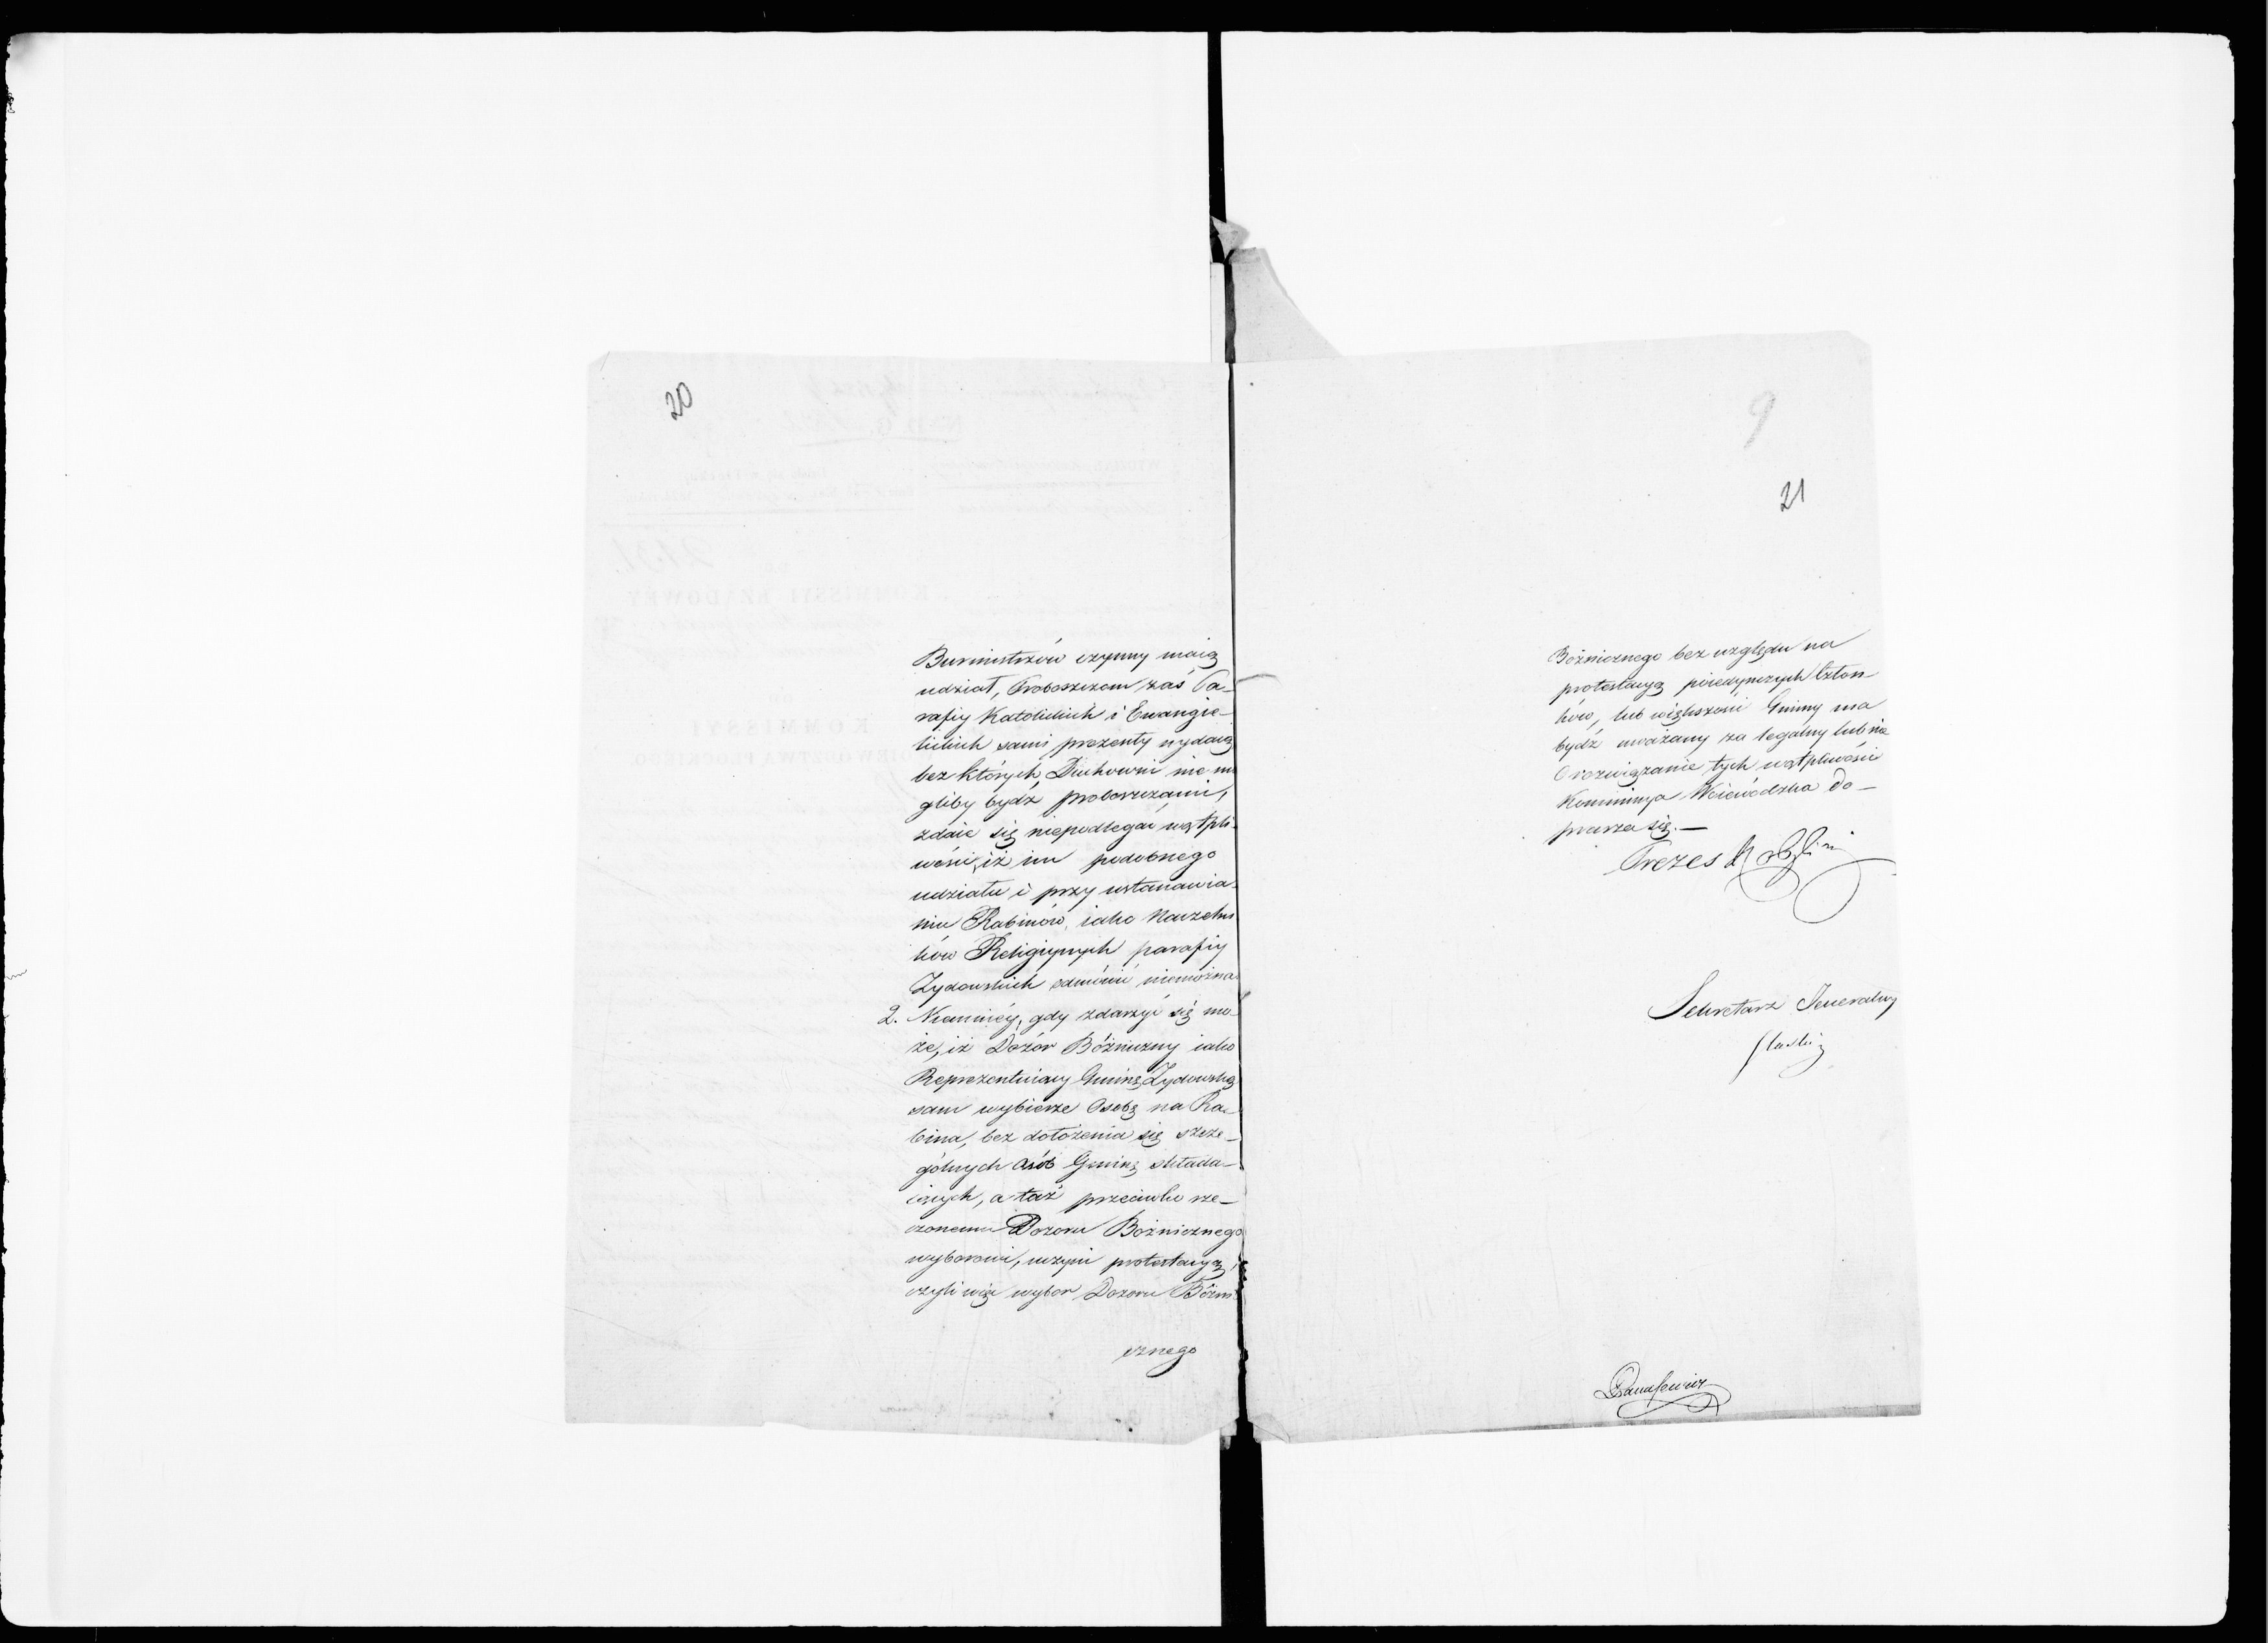 20
Burmistrzów czynny maią
udział, Proboszczom zaś Pa-
rafiy Katolickich i Ewangie-
lickich sami prezenty wydaią
bez których, Duchowni nie mo
gliby bydź proboszczami,
zdaie się niepodlegać wątpli-
wości, iż im podobnego
udziału i przy ustanawia-
niu Rabinów, iako Naczelni
ków Religiynych parafiy
Żydowskich odmówić niemożna.
2. Niemniéy, gdy zdarzyć się mo-
że, iż Dozór Bóżniczny iako
Reprezentuiący Gminę Żydowską
sam wybierze Osobę na Ra-
bina, bez dołożenia się szcze-
gólnych Osób Gminę składa-
iących, a taż przeciwko rze-
czonemu Dozoru Bożnicznego
wyborowi, uczyni protestacyą,
czyli więc wybor Dozoru Bóżni-
cznego
9
21
Bóżnicznego bez względu na
protestacyą poiedynczych Człon-
ków, lub większości Gminy ma
bydź uważany za legalny lub nie
O rozwiązanie tych wątpliwości
Kommissya Woiewódzka do-
prasza się.—
Prezes
Sekretarz Jeneralny